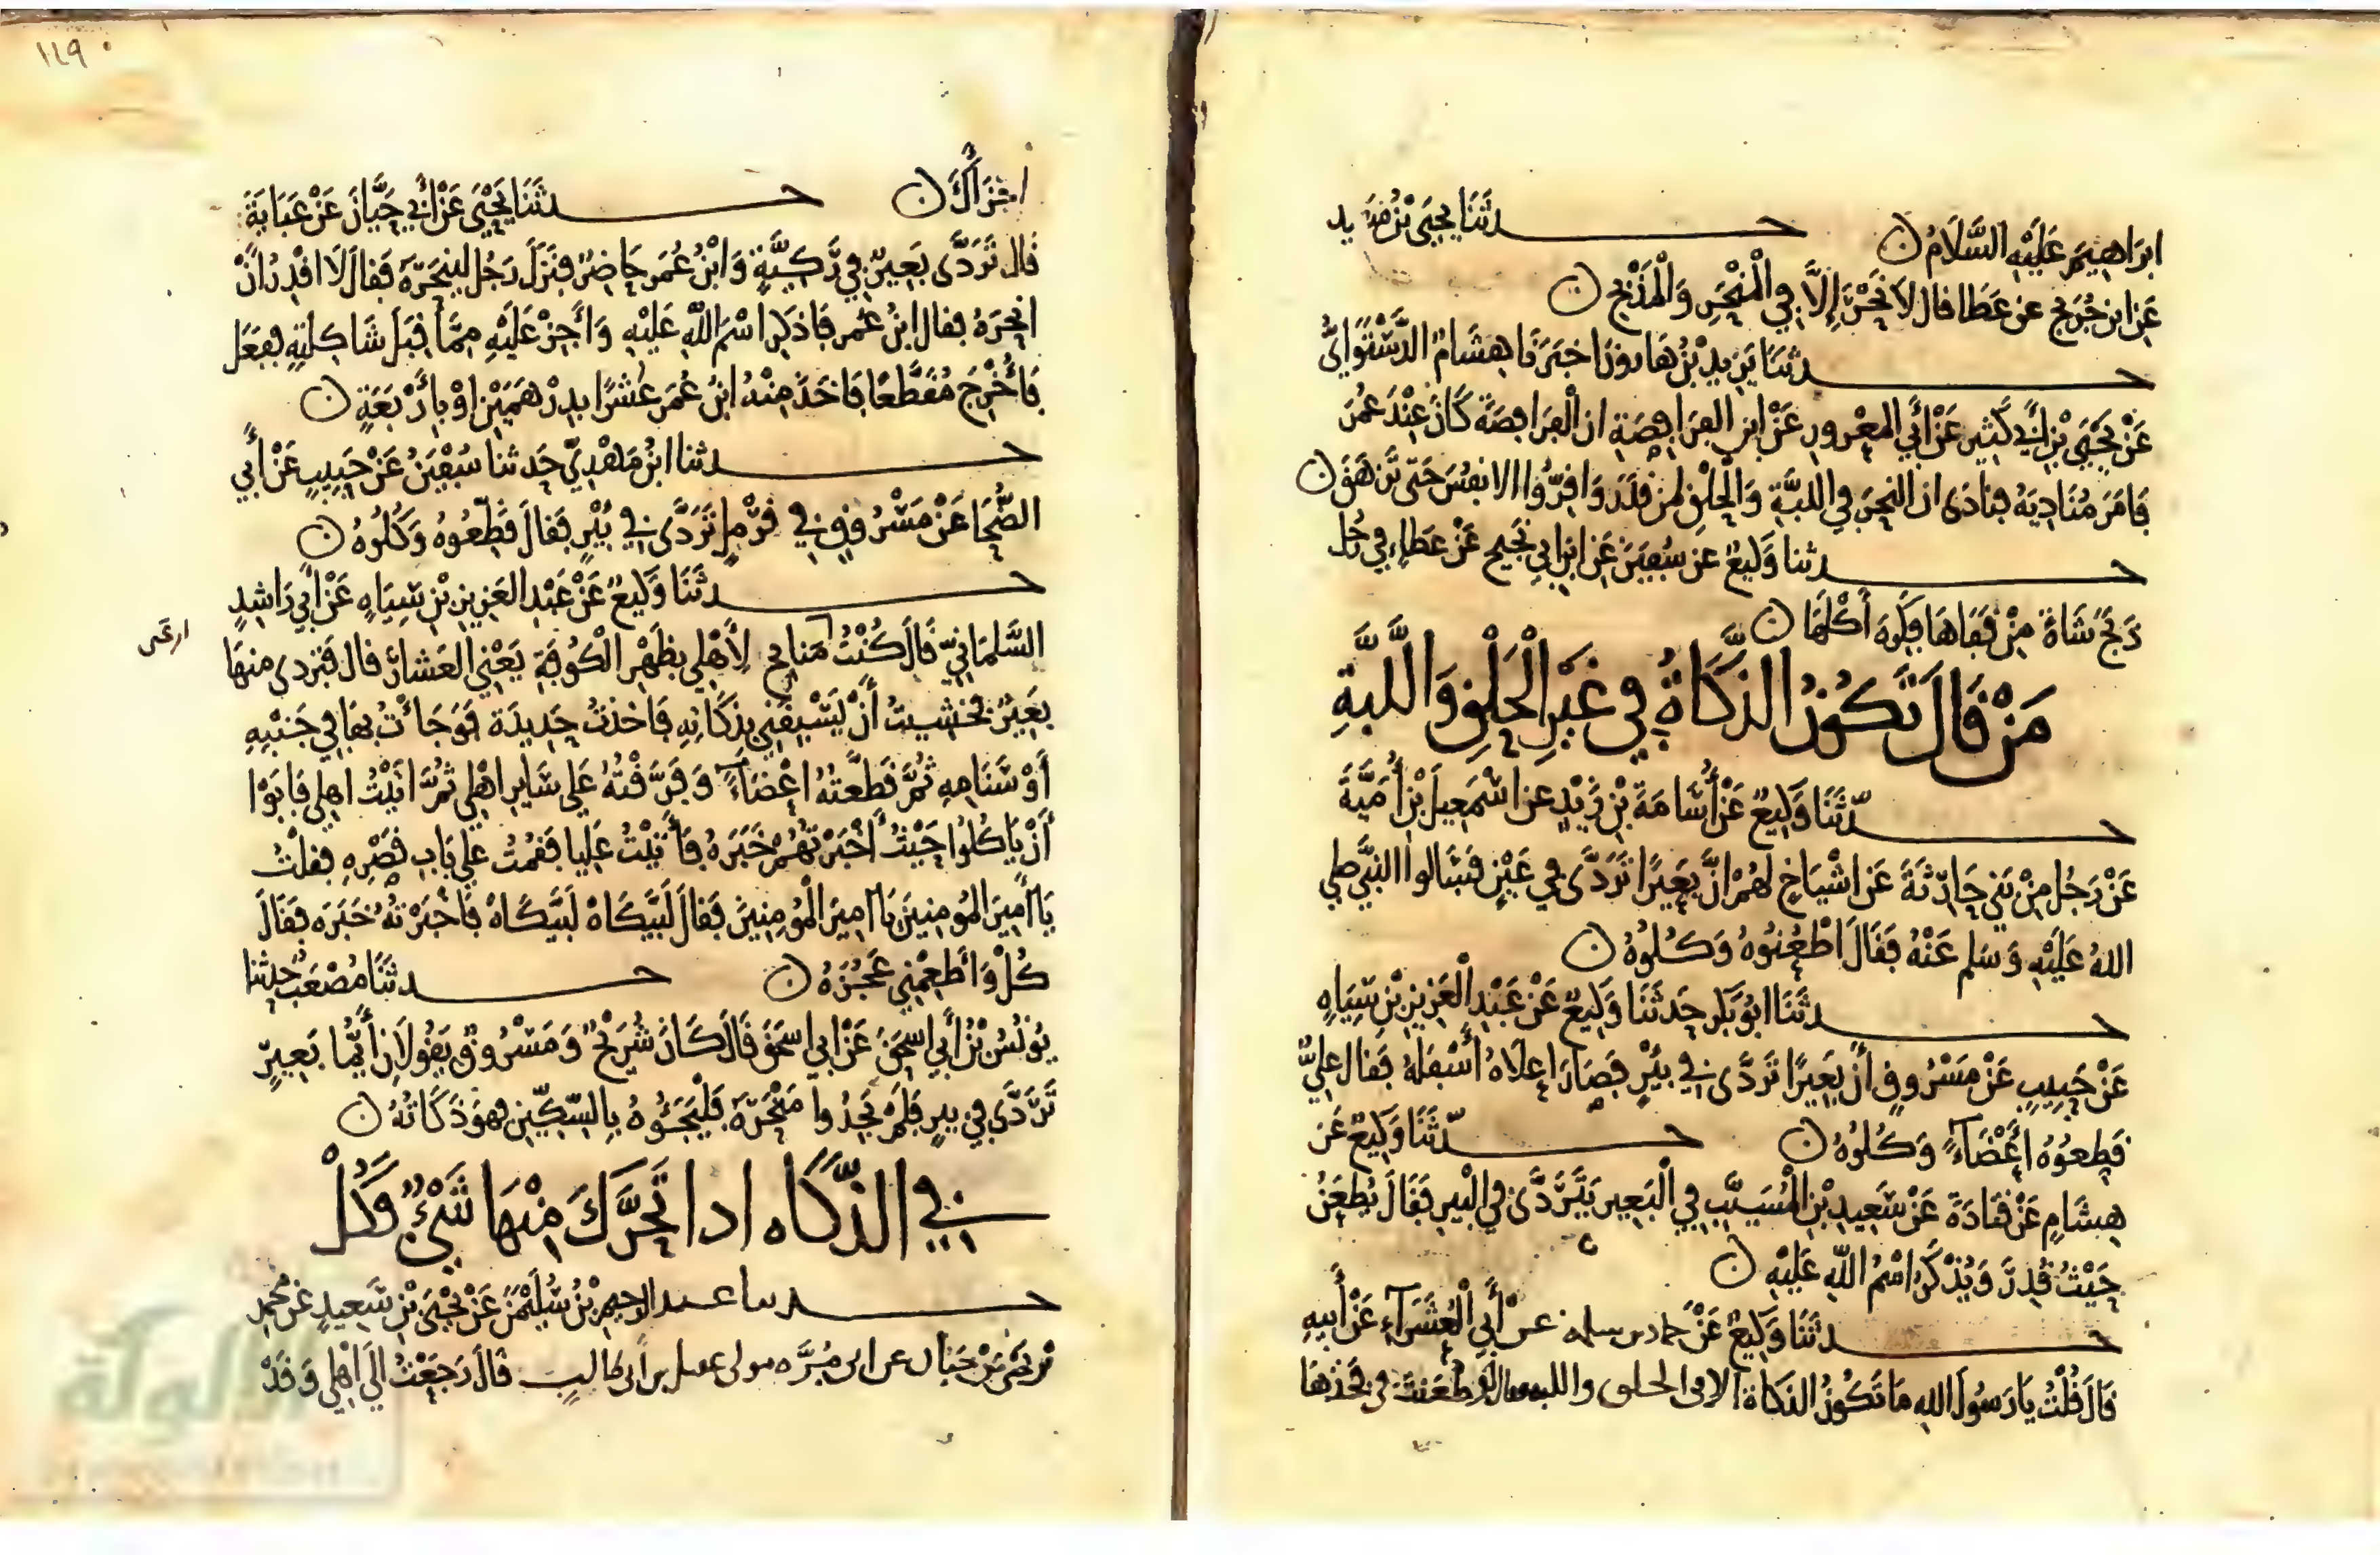 ابراهيم عليه السلام ن حدثنا يحيى بن
عن ابن جريج عن عطا قال لا نحر إلا في المنحر والمذبح ن
حدثنا يزيد بن هارون اخبرنا هشام الدستوائي
عن يحيى بن أبي كثير عن أبي المعرور عن ابن الفرافصة ان الفرافصة كان عند عمر
فامر مناديه فنادى ان النحر في اللبة والحلق لمن قدر واقروا الانفس حتى تزهق ن
حدثنا وكيع عن سفين عن ابن ابي نجيح عن عطاء في رجل
ذبح شاة من قفاها فكره أكلها ن
من قال تكون الذكاة في غير الحلق واللبة
حدثنا وكيع عن أسامة بن زيد عن اسمعيل بن أمية
عن رجل من بني حارثة عن اشياخ لهم ان بعيرا تردى في فسالوا النبي صلى
الله عليه وسلم عنه فقال اطعنوه وكلوه ن
حدثنا ابو بكر حدثنا وكيع عن عبد العزيز بن سياه
عن حبيب عن مسروق أن بعيرا تردى في بئر فصار اعلاه أسفله فقال علي
قطعوه اعضاء وكلوه ن حدثنا وكيع عن
هشام عن قتادة عن سعيد بن المسيب في البعير يتردى في البير فقال يطعن
حيث قدر ويذكر اسم الله عليه ن
حدثنا وكيع عن حماد بن سلمة عن أبي العشراء عن أبيه
قال قلت يا رسول الله ما تكون الذكاة الا في الحلق واللبه فقال لو طعنت في فخذها
١٤٩
اجزأك ن حدثنا يحيى عن أبي حيان عن عباية
قال تردى بعير في ركية وابن عمر حاضر فنزل رجل لينحره فقال لا اقدر ان
انحره فقال ابن عمر فاذكر اسم الله عليه واجز عليه مما قبل شاكلته ففعل
فأخرج مقطعا فاخذ منه ابن عمر عشرا بدرهمين او بأربعة ن
حدثنا ابن مهدي حدثنا سفين عن حبيب عن أبي
الضحا عن مسروق في قرم تردى في بئر فقال قطعوه وكلوه ن
حدثنا وكيع عن عبد العزيز بن سياه عن أبي راشد
السلماني قال كنت منايح لأهلي بظهر الكوفة يعني العشار قال فتردى منها
ارعى
بعير فخشيت أن يسبقني بذكاته فاخذت حديدة فوجأت بها في جنبه
أو سنامه ثم قطعته اعضاء وفرقته على ساير اهلي ثم اتيت اهلي فابوا
أن ياكلوا حيث أخبرتهم خبره فأتيت عليا فقمت على باب قصره فقلت
يا أمير المومنين يا امير المومنين فقال لبيكاه لبيكاه فاخبرته خبره فقال
كل وأطعمني عجزه ن حدثنا مصعب حدثنا
يونس بن أبي اسحق عن ابي اسحق قال كان شريح ومسروق يقولان أيما بعير
تردى في بير فلم يجدوا منحره فليجئوه بالسكين فهو ذكاته ن
في الذكاه اذا تحرك منها شيء فكل
حدثنا عبد الرحيم بن سليمن عن يحيى بن سعيد عن محمد
بن يحيى بن حبان عن ابي مره مولى عقيل بن أبي طالب قال رجعت الى اهلي وقد
الألوكة